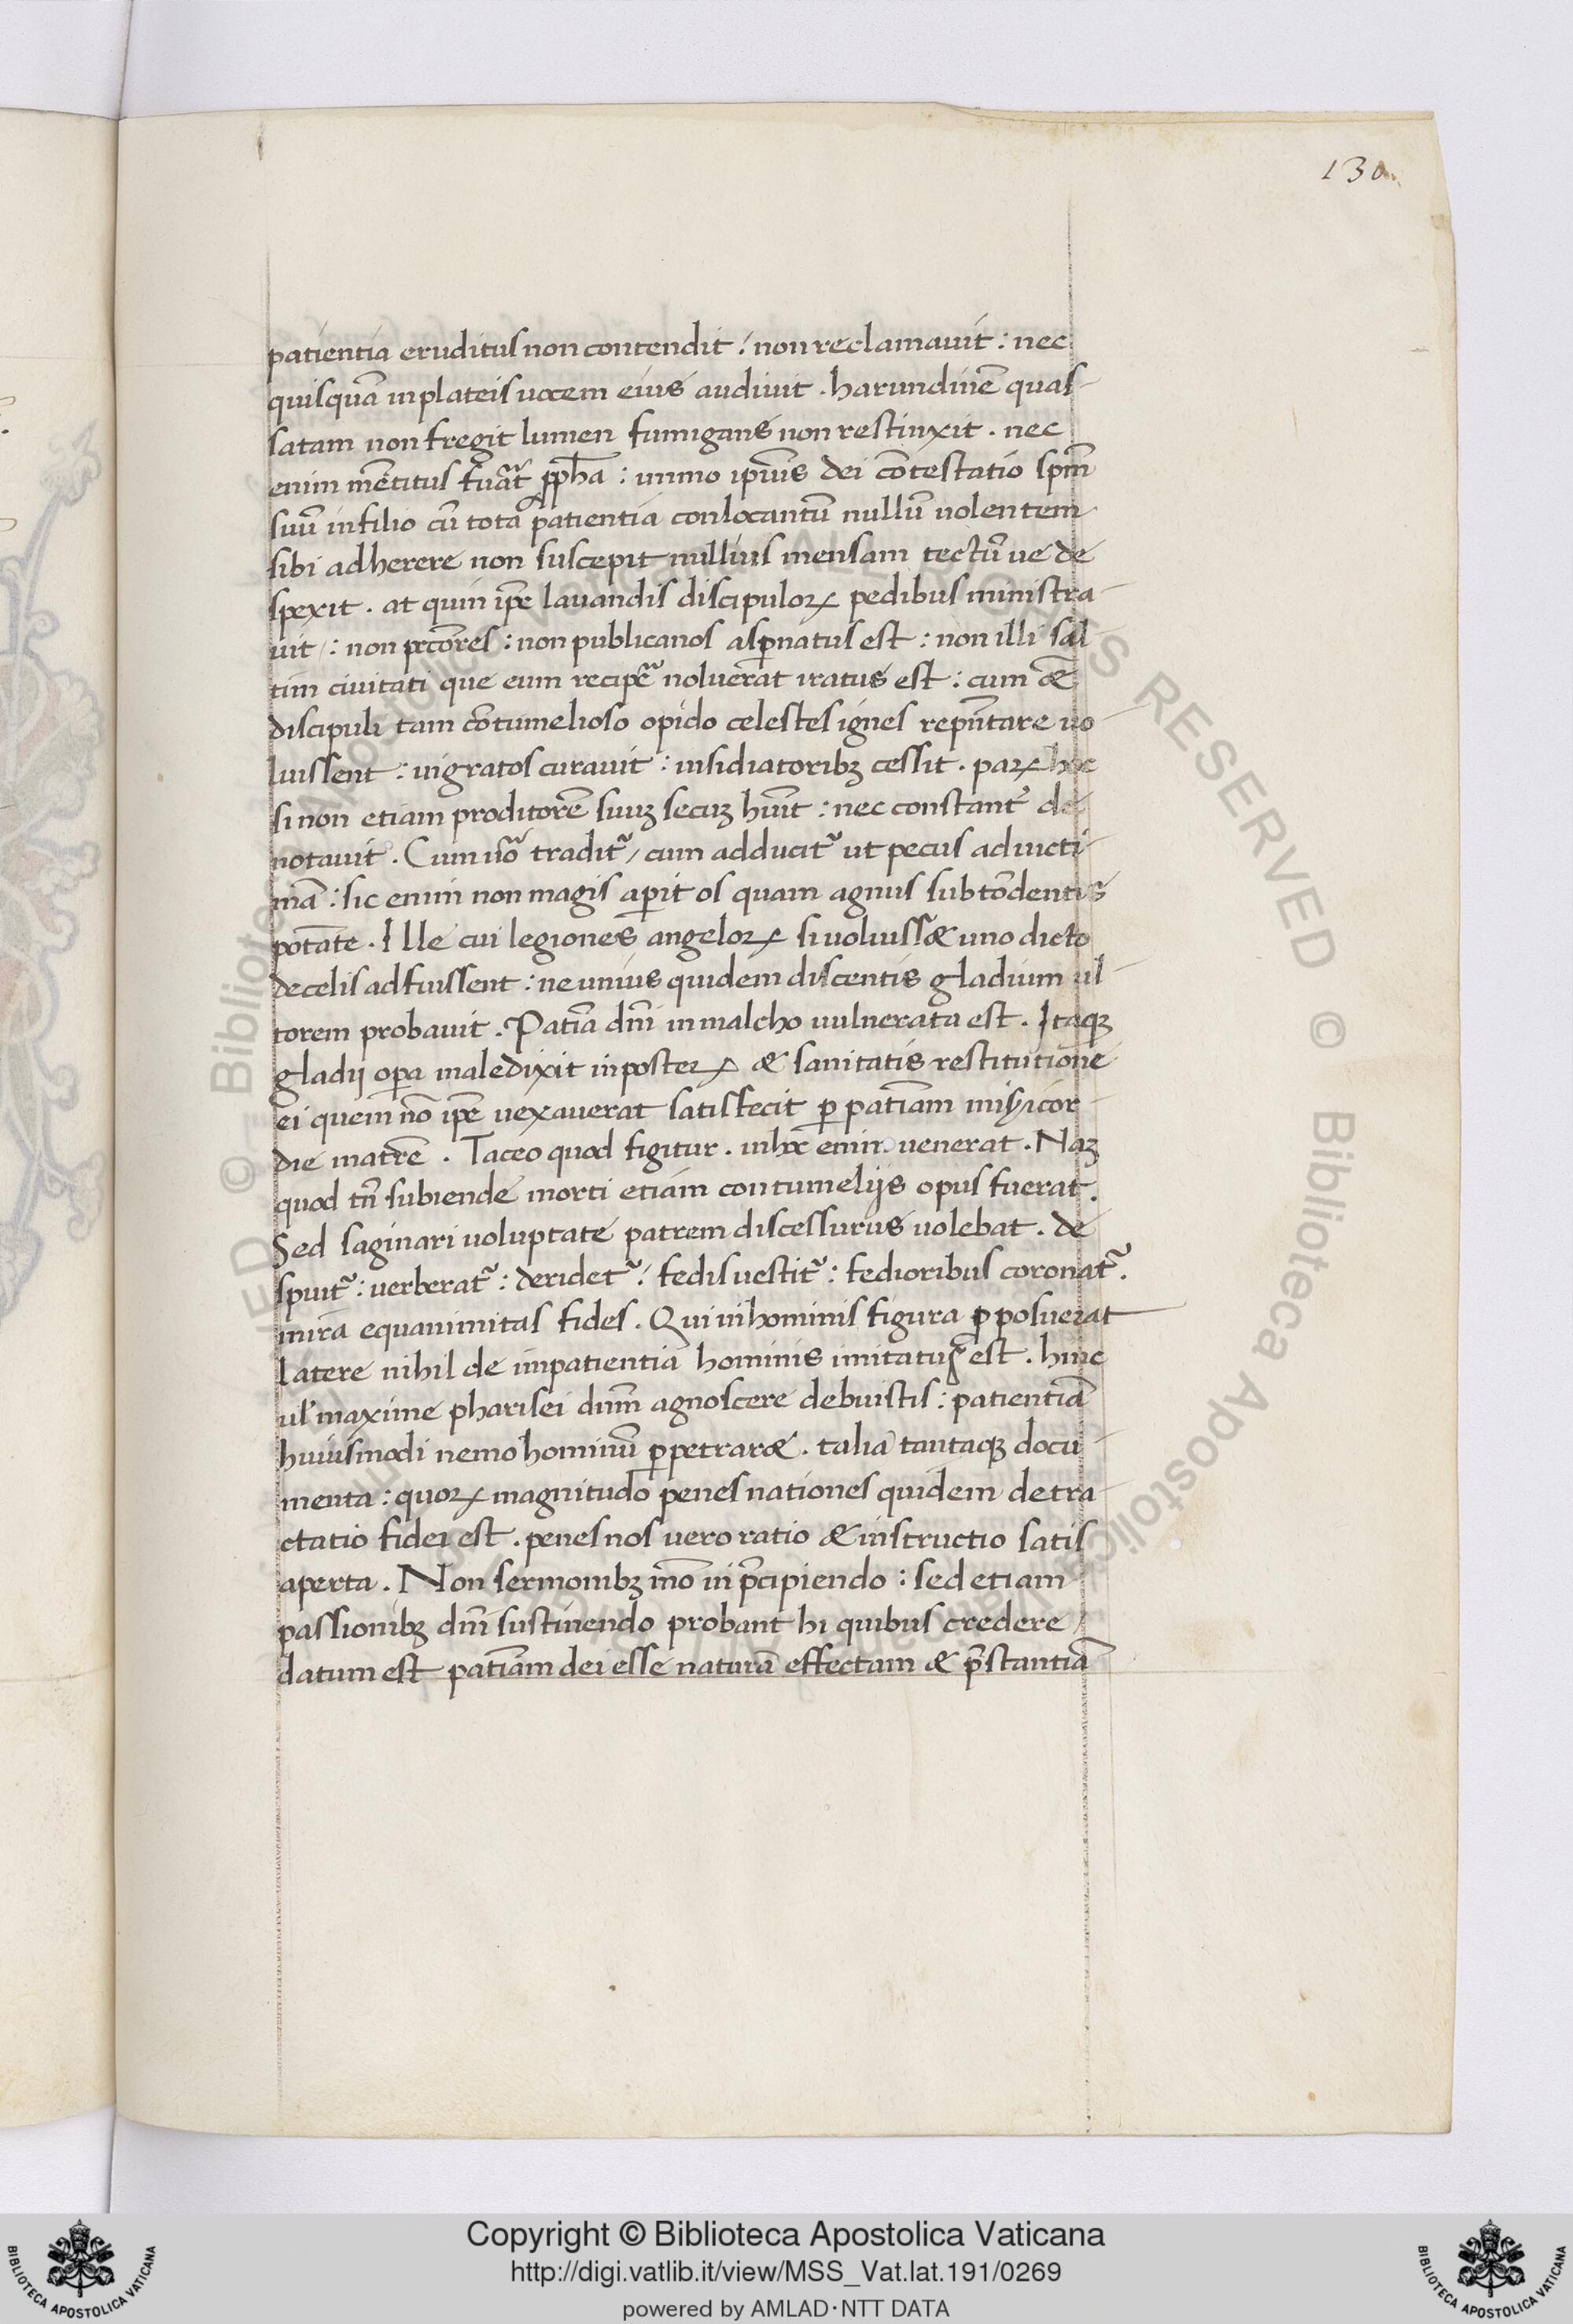 130
patientia eruditus non contendit: non reclamauit: nec
quisquā in plateis uocem eius audiuit. harundinē quas-
satam non fregit lumen fumigans non restinxit. nec
enim mētitus fuāt ꝓpha: immo ipius dei cōtestatio spm̄
suū in filio cū tota patientia conlocantū nullū uolentem
sibi adherere non suscepit nullius mensam tectūue de
spexit. at quin ipe lauandis discipuloꝝ pedibus ministra-
uit: non pctōres: non publicanos asꝑnatus est: non illi sal-
tim ciuitati que eum recipe noluerat iratus est: cum &
discipuli tam cōtumelioso opido celestes ignes repn̄tare uo-
luissent: ingratos curauit: insidiatoribꝫ cessit. paꝝ hoc
si non etiam proditorē suuꝫ secuꝫ huīt: nec constant̄ de
notauit. Cum uō tradit᷑, cum adducit᷑ ut pecus ad uicti-
mā: sic enim non magis aꝑit os quam agnus sub tōdentis
potāte. Ille cui legiones angeloꝝ si uoluiss& uno dicto
de celis adfuissent: ne unius quidem discentis gladium ul-
torem probauit. Patīa dn̄i in malcho uulnerata est. Itaqꝫ
gladij oꝑa maledixit in posteꝝ & sanitatis restitutione
ei quem nō ipe uexauerat satisfecit ꝑ patīam misicor-
die matrē. Taceo quod figitur. in hoc enim uenerat. Naꝫ
quod tn̄ subiende morti etiam contumelijs opus fuerat.
Sed saginari uoluptate patrem discessurus uolebat. de
spuit᷑: uerberat᷑: deridet᷑: fedis uestit᷑: fedioribus coronat᷑.
mira equanimitas fides. Qui in hominis figura ꝓposuerat
latere nihil de impatientia hominis imitatus est. hinc
ul̄ maxime pharisei dn̄m agnoscere debuistis: patientiā
huiusmodi nemo hominū ꝑpetrar&. talia tantaqꝫ docu-
menta: quoꝝ magnitudo penes nationes quidem detra-
ctatio fidei est. penes nos uero ratio & instructio satis
aperta. Non sermonibꝫ mō in p̄cipiendo: sed etiam
passionibꝫ dn̄i sustinendo probant hi quibus credere
datum est patīam dei esse naturā effectam & p̄stantiā
© Biblioteca Apostolica Vaticana ALL RIGHTS RESERVED
Copyright © Biblioteca Apostolica Vaticana
http://digi.vatlib.it/view/MSS_Vat.lat.191/0269
powered by AMLAD·NTT DATA
BIBLIOTECA APOSTOLICA VATICANA
BIBLIOTECA APOSTOLICA VATICANA